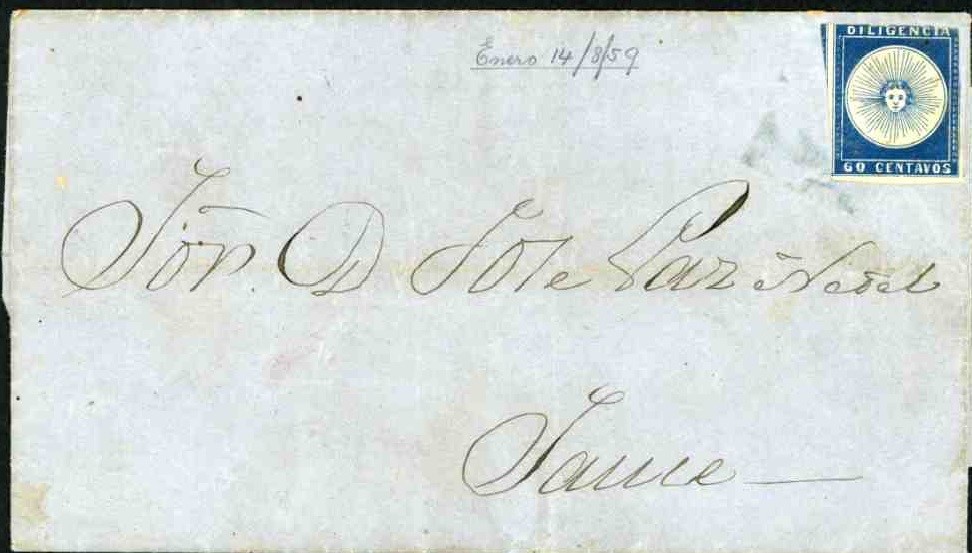 Enero 14/8/59
DILIGENCIA
60 CENTAVOS
Sör. D Jose Paz
Sauce